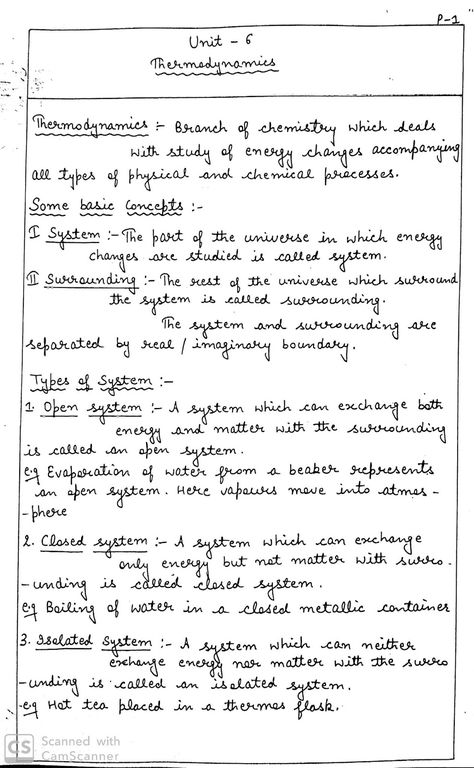 P-1
Unit - 6
Thermodynamics
Thermodynamics :- Branch of chemistry which deals
with study of energy changes accompanying
all types of physical and chemical processes.
Some basic concepts :-
I System :- The part of the universe in which energy
changes are studied is called system.
II Surrounding :- The rest of the universe which surround
the system is called surrounding.
The system and surrounding are
separated by real / imaginary boundary.
Types of System :-
1. Open system :- A system which can exchange both
energy and matter with the surrounding
is called an open system.
e.g Evaporation of water from a beaker represents
an open system. Here vapours move into atmos-
-phere
2. Closed system :- A system which can exchange
only energy but not matter with surro.
-unding is called closed system.
e.g Boiling of water in a closed metallic container
3. Isolated System :- A system which can neither
exchange energy nor matter with the surro
-unding is called an isolated system.
-e.g Hot tea placed in a thermos flask.
CS Scanned with
CamScanner